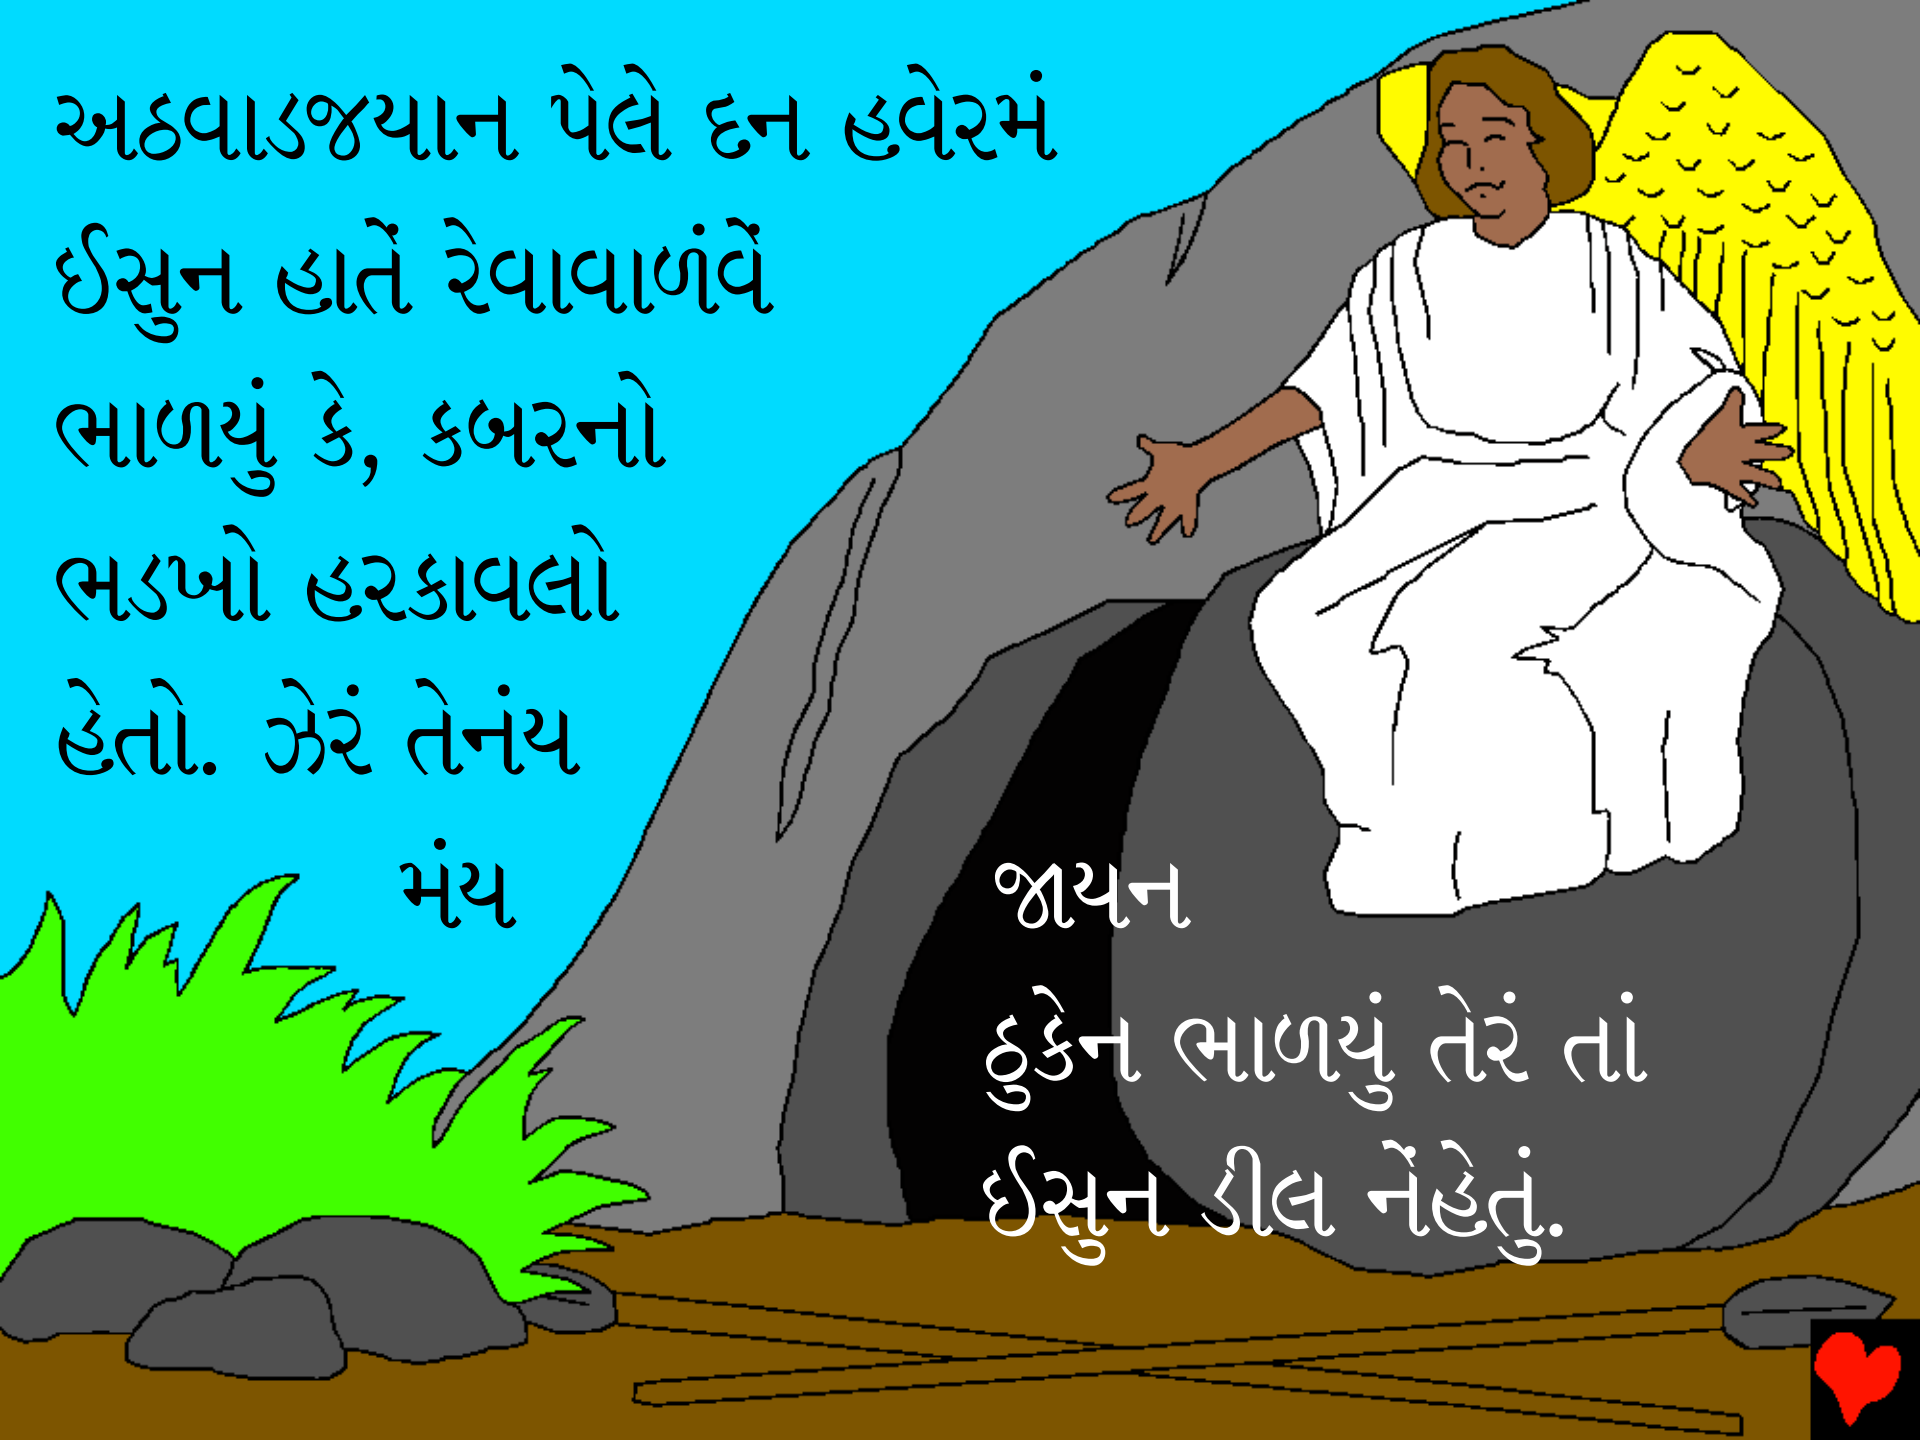 અઠવાડજયાન પેલે દન હવેરમં
ઈસુન હાતેં રેવાવાળંવેં
ભાળયું કે, કબરનો
ભડખો હરકાવલો
હેતો. ઝેરં તેનંય
મંય જાયન
ઠુકેન ભાળયું તેરં તાં
ઈસુન ડીલ નેંહેતું.